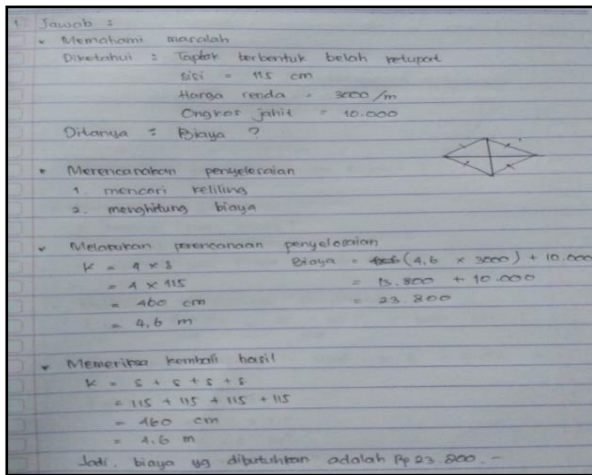 1. Jawab :
• Memahami masalah
Diketahui : Taplak berbentuk belah ketupat
sisi = 115 cm
Harga renda = 3000/m
Ongkos jahit = 10.000
Ditanya : Biaya ?
• Merencanakan penyelesaian
1. mencari keliling
2. menghitung biaya
• Melakukan perencanaan penyelesaian
K = 4 x s
= 4 x 115
= 460 cm
= 4,6 m
Biaya = (4,6 x 3000) + 10.000
= 13.800 + 10.000
= 23.800
• Memeriksa kembali hasil
K = s + s + s + s
= 115 + 115 + 115 + 115
= 460 cm
= 4.6 m
Jadi, biaya yg dibutuhkan adalah Rp 23.800.-